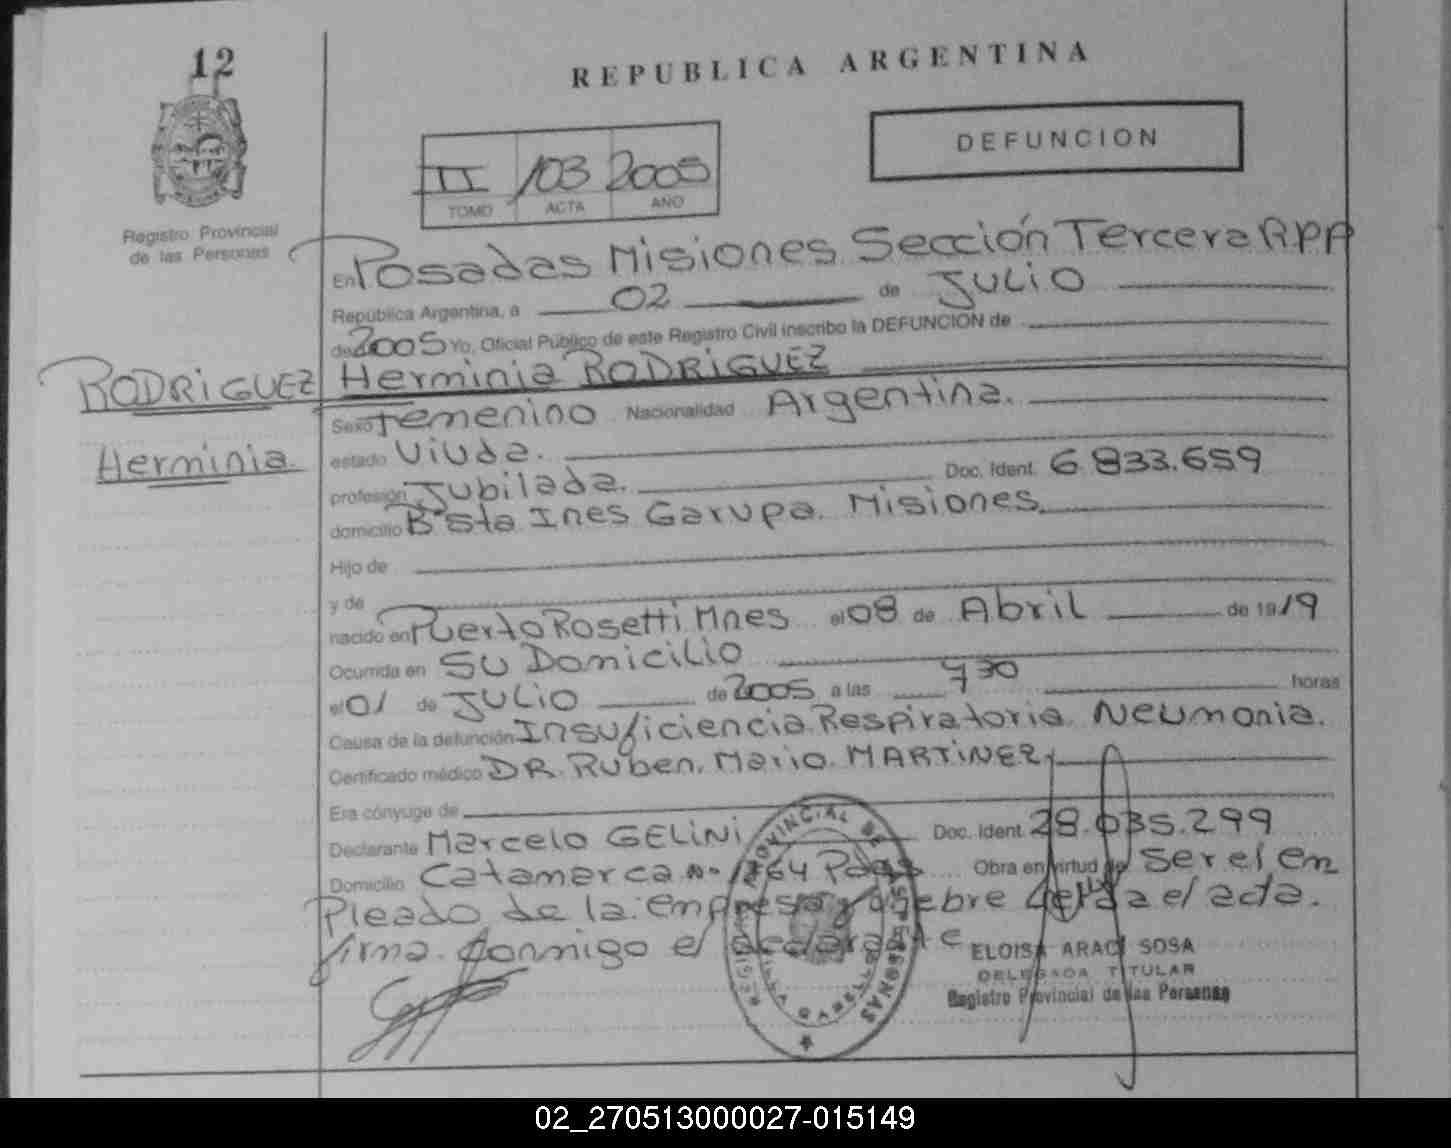 12
REPUBLICA ARGENTINA
DEFUNCION
II 103 2005
TOMO ACTA AÑO
Registro Provincial
de las Personas
En Posadas Misiones Sección Tercera RPP
República Argentina, a 02 de JULIO
de 2005 Yo, Oficial Público de este Registro Civil inscribo la DEFUNCION de
RODRIGUEZ Herminia RODRIGUEZ
Sexo Femenino Nacionalidad Argentina.
Herminia
estado Viuda.
profesión Jubilada. Doc. Ident. 6.833.659
domicilio B° Sta Ines Garupa. Misiones.
Hijo de
y de
nacido en Puerto Rosetti Mnes el 08 de Abril de 1919
Ocurrida en SU Domicilio
el 01 de JULIO de 2005 a las 7 30 horas
Causa de la defunción Insuficiencia Respiratoria Neumonia.
Certificado médico DR. Ruben. Mario. MARTINEZ
Era cónyuge de
Declarante Marcelo GELINI Doc. Ident. 28.035.299
Domicilio Catamarca Nº 1764 Pdas Obra en virtud de Ser el em
Pleado de la empresa funebre Leida el acta.
firma conmigo el declarante
ELOISA ARACI SOSA
DELEGADA TITULAR
Registro Provincial de las Personas
02_270513000027-015149